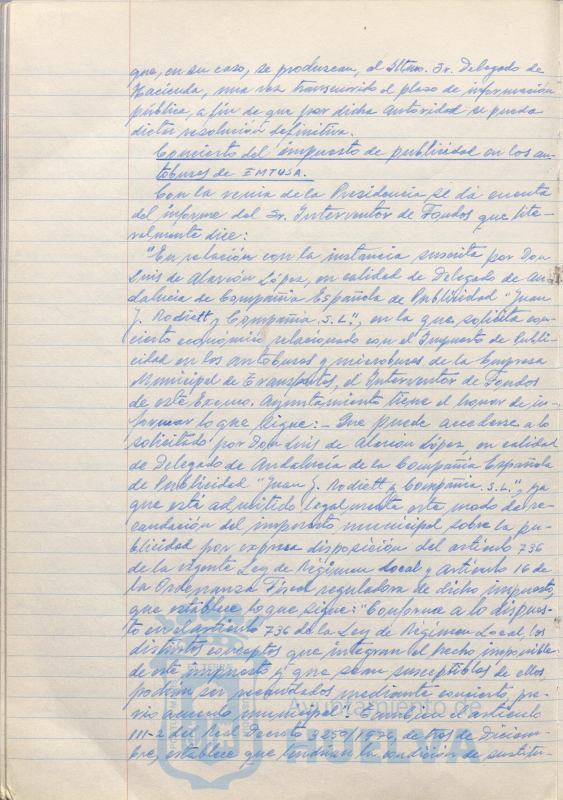 que, en su caso, se produzcan, al Iltmo. Sr. Delegado de
Hacienda, una vez transcurrido el plazo de información
pública, a fin de que por dicha autoridad se pueda
dictar resolución definitiva.
Concierto del impuesto de publicidad en los au-
tobuses de EMTUSA.
Con la venia de la Presidencia se da cuenta
del informe del Sr. Interventor de Fondos que lite-
ralmente dice:
"En relación con la instancia suscrita por Don
Luis de Alarcón López, en calidad de Delegado de An-
dalucía de Compañía Española de Publicidad "Juan
J. Rodiett y Compañía S.L.", en la que solicita con-
cierto económico relacionado con el Impuesto de Publi-
cidad en los autobuses y microbuses de la Empresa
Municipal de Transportes, el Interventor de Fondos
de este Excmo. Ayuntamiento tiene el honor de in-
formar lo que sigue: - Que puede accederse a lo
solicitado por Don Luis de Alarcón López en calidad
de Delegado de Andalucía de la Compañía Española
de Publicidad "Juan J. Rodiett y Compañía S.L.", ya
que está admitido legalmente este modo de re-
caudación del impuesto municipal sobre la pu-
blicidad por expresa disposición del artículo 736
de la vigente Ley de Régimen Local y artículo 16 de
la Ordenanza Fiscal reguladora de dicho impuesto,
que establece lo que sigue: "Conforme a lo dispues-
to en el artículo 736 de la Ley de Régimen Local, los
distintos conceptos que integran el hecho imponible
de este impuesto y que sean susceptibles de ellos
podrán ser recaudados mediante concierto, pre-
vio acuerdo municipal". También el artículo
111-2 del Real Decreto 3250/1976, de tres de Diciem-
bre, establece que tendrían la condición de sustitu-
Ayuntamiento de
HUELVA